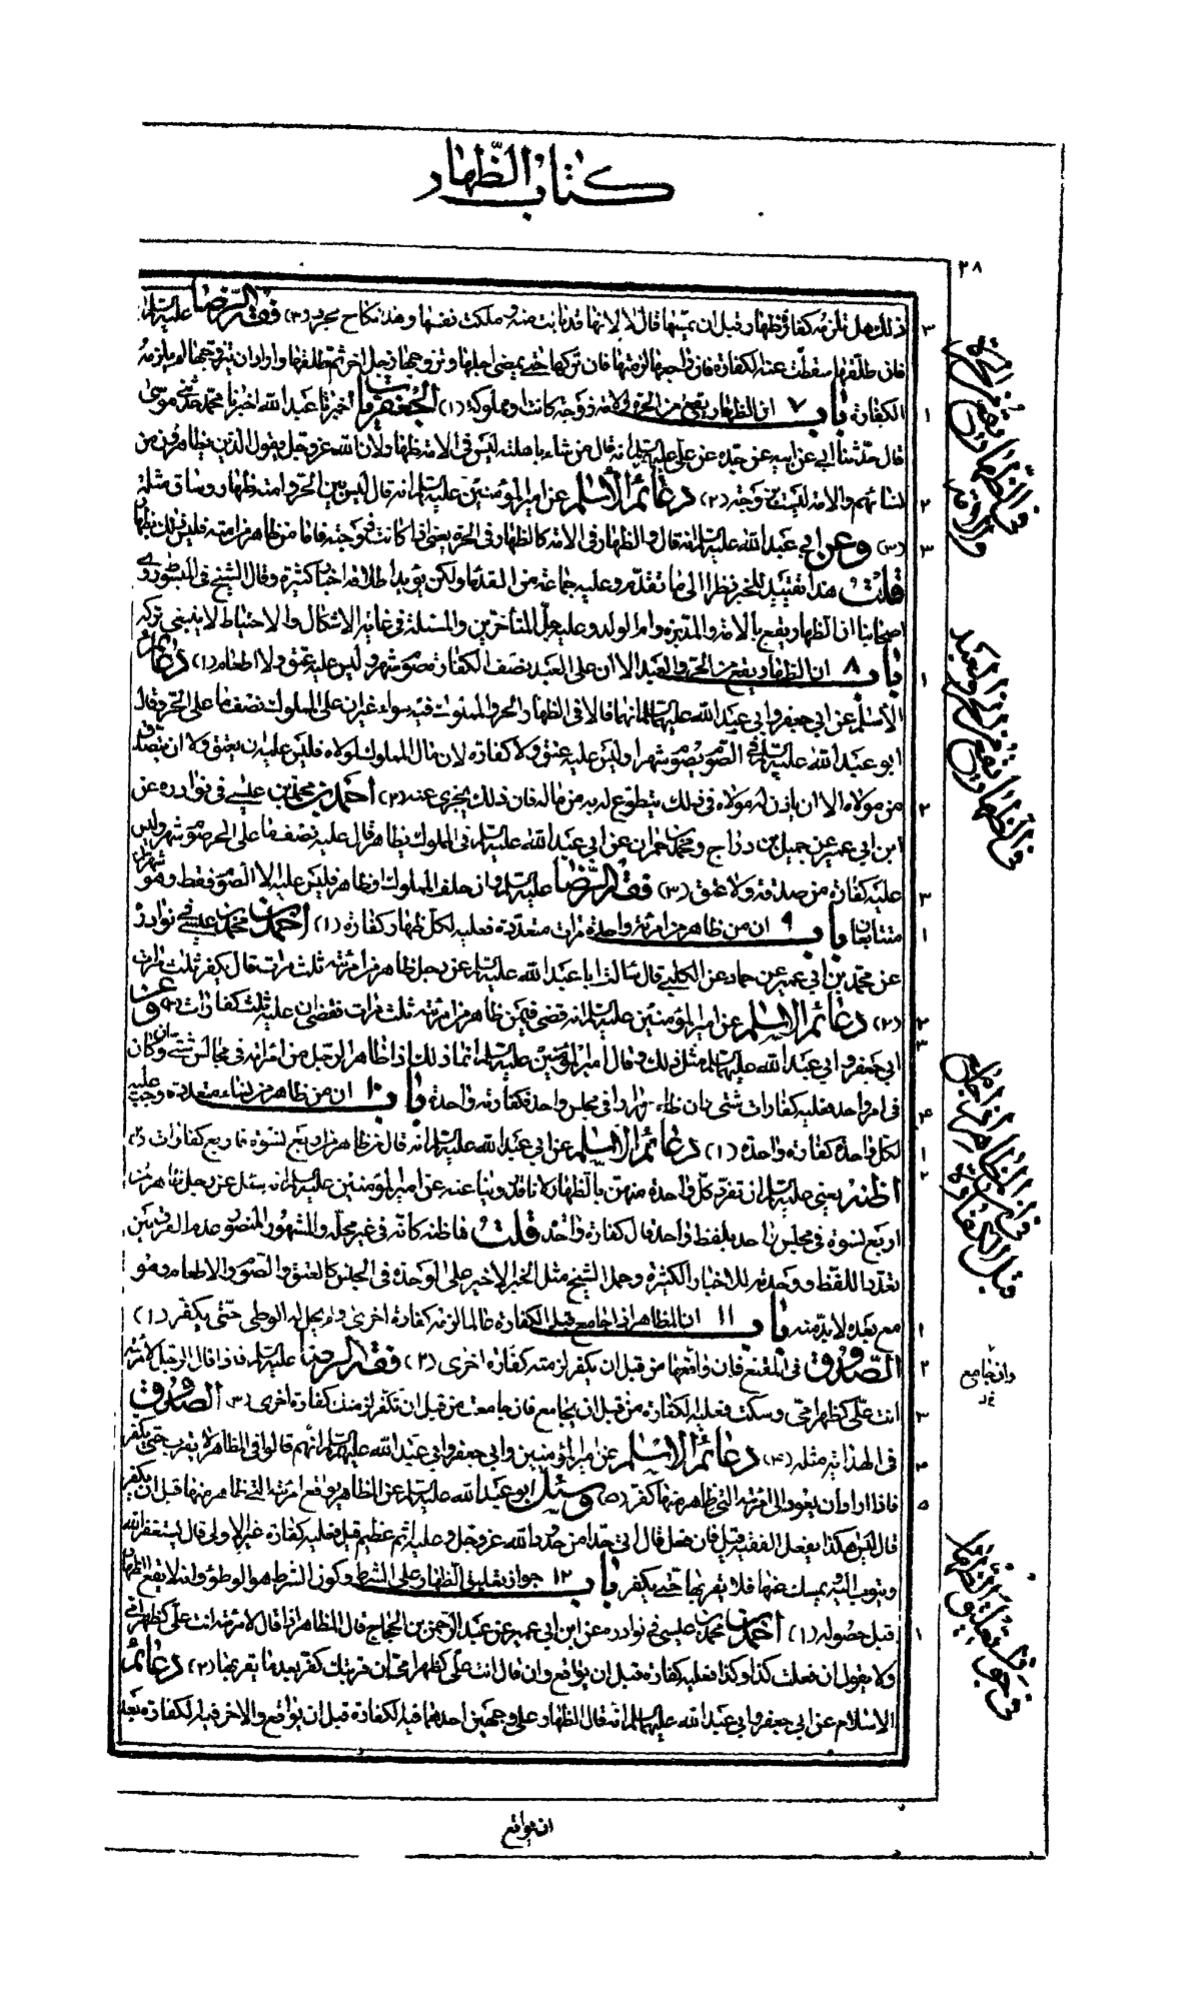 كتاب الظهار
٢٨
ذلك هل تلزمه كفارة ظهار قبل ان يمسها قال لا لانها قد بانت منه وملكت نفسها وهذا نكاح مجرد (٣) فقه الرضا عليه السلام
فان طلقها سقطت عنه الكفارة فان راجعها لزمته فان تركها حتى يمضي اجلها وتزوجها رجل اخر ثم طلقها واراد ان يتزوجها لم يلزمه
الكفارة باب ٧ ان الظهار يقع من الحرة والامة زوجة كانت ومملوكة (١) الجعفريات اخبرنا عبد الله اخبرنا محمد حدثني موسى
قال حدثنا ابي عن ابيه عن جده عن علي عليه السلام انه قال من شاء باهلته ليس في الامة ظهار لان الله عز وجل يقول الذين يظاهرون من
نسائهم والامة ليست بزوجة (٢) دعائم الأسلم عن امير المؤمنين عليه السلام انه قال ليس بين الحر وامته ظهار وساق مثله
(٣) وعن ابي عبد الله عليه السلام انه قال والظهار في الامة كالظهار في الحرة يعني اذا كانت زوجة فاما من ظاهر من امته فليس ذلك بظهار
قلت هذا تقييد للخبر نظرا الى ما تقدم وعليه جماعة من القدماء ولكن يؤيد اطلاقه اخبار كثيرة وقال الشيخ في المبسوط روى
اصحابنا ان الظهار يقع بالامة والمدبرة وام الولد وعليه جل المتأخرين والمسئلة في غاية الاشكال والاحتياط لا ينبغي تركه
باب ٨ ان الظهار يقع من الحر والعبد الا ان على العبد نصف الكفارة صوم شهر وليس عليه عتق ولا اطعام (١) دعائم
الأسلم عن ابي جعفر وابي عبد الله عليهما السلام انهما قالا في الظهار الحر والمملوك فيه سواء غير ان على المملوك نصف ما على الحر وقال
ابو عبد الله عليه السلام في الصوم يصوم شهرا وليس عليه عتق ولا كفارة لان مال المملوك لمولاه فليس عليه ان يعتق ولا ان يتصدق
من مولاه الا ان ياذن له مولاه في ذلك يتطوع له به من ماله فان ذلك يجزى عنه (٢) احمد بن محمد بن عيسى في نوادره عن
ابن ابي عمير عن جميل بن دراج ومحمد بن حمران عن ابي عبد الله عليه السلام في المملوك يظاهر قال عليه نصف ما على الحر صوم شهر وليس
عليه كفارة من صدقة ولا عتق (٣) فقه الرضا عليه السلام وان حلف المملوك او ظاهر فليس عليه الا الصوم فقط وهو شهران
متتابعان باب ٩ ان من ظاهر من امرئة واحدة مرات متعددة فعليه لكل ظهار كفارة (١) احمد بن محمد بن عيسى في نوادره
عن محمد بن ابي عمير عن حماد عن الحلبي قال سالت ابا عبد الله عليه السلام عن رجل ظاهر من امرئته ثلث مرات قال يكفر ثلث مرات
(٢) دعائم الاسلم عن امير المؤمنين عليه السلام انه قضى فيمن ظاهر من امرئته ثلث مرات فقضى ان عليه ثلث كفارات (٣) وعن
ابي جعفر وابي عبد الله عليهما السلام مثل ذلك وقال امير المؤمنين عليه السلام انما ذلك اذا ظاهر الرجل من امرأته في مجالس شتى وان كان
في امر واحد فعليه كفارات شتى وان ظاهر مرارا في مجلس واحد فكفارته واحدة باب ١٠ ان من ظاهر من نساء متعددة وجب عليه
لكل واحدة كفارة واحدة (١) دعائم الاسلم عن ابي عبد الله عليه السلام انه قال من ظاهر من اربع نسوة فاربع كفارات (٢)
اظنه يعني عليه السلام ان تفرد كل واحدة منهن بالظهار لانا قد روينا عنه عن امير المؤمنين عليه السلام انه سئل عن رجل ظاهر من
اربع نسوة في مجلس واحد بلفظ واحد قال كفارة واحدة قلت فاظنه كانه في غير محله والمشهور المنصور عدم الفرق بين
تعدد اللفظ ووحدته للاخبار الكثيرة وحمل الشيخ مثل الخبر الاخير على الوحدة في الجنس كالعتق والصوم والاطعام وهو
مع بعده لا بد منه باب ١١ ان المظاهر اذا جامع قبل الكفارة عالما لزمه كفارة اخرى ولم يحل له الوطي حتى يكفر (١)
الصدوق في المقنع فان واقعها من قبل ان يكفر لزمته كفارة اخرى (٢) فقه الرضا عليه السلام فاذا قال الرجل لامرئته
انت علي كظهر امي وسكت فعليه الكفارة من قبل ان يجامع فان جامعت من قبل ان تكفر لزمتك كفارة اخرى (٣) الصدوق
في الهداية مثله (٤) دعائم الاسلم عن امير المؤمنين وابي جعفر وابي عبد الله عليهم السلام انهم قالوا في المظاهر لا يقرب حتى يكفر
فاذا اراد ان يعود الى امرئته التي ظاهر منها كفر (٥) وسئل ابو عبد الله عليه السلام عن المظاهر يواقع امرئته التي ظاهر منها قبل ان يكفر
قال ليس هكذا يفعل الفقيه قيل فان فعل قال اتى حدا من حدود الله عز وجل وعليه اثم عظيم قيل فعليه كفارة غير الاولى قال يستغفر الله
ويتوب اليه ويمسك عنها فلا يقربها حتى يكفر باب ١٢ جواز تعليق الظهار على الشرط وكون الشرط هو الوطؤ وانه لا يقع الظهار
قبل حصوله (١) احمد بن محمد بن عيسى في نوادره عن ابن ابي عمير عن عبد الرحمن بن الحجاج قال المظاهر اذا قال لامرئته انت علي كظهر امي
ولا يقول ان فعلت كذا وكذا فعليه كفارة قبل ان يواقع وان قال انت علي كظهر امي ان قربتك كفر بعد ما يقربها (٢) دعائم
الاسلام عن ابي جعفر وابي عبد الله عليهما السلام انه قال الظهار على وجهين احدهما فيه الكفارة قبل ان يواقع والاخر فيه الكفارة بعد
ان يواقع
وان جامع